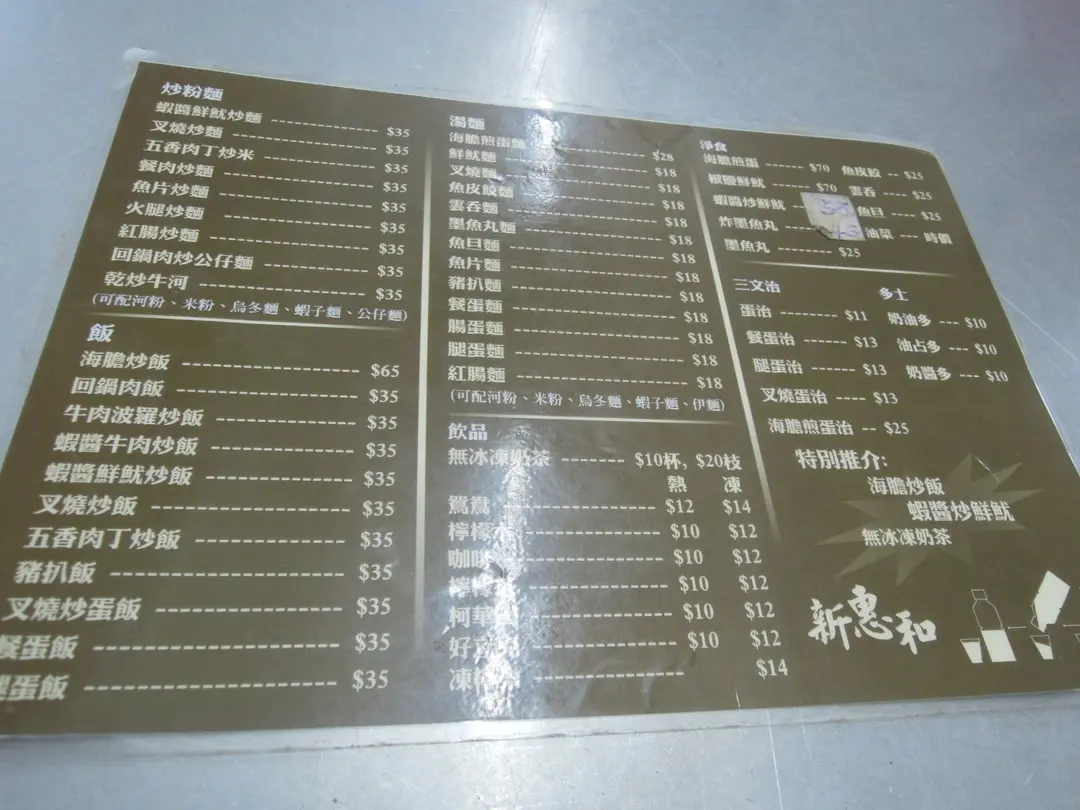 炒粉麵
蝦醬鮮魷炒麵 $35
叉燒炒麵 $35
五香肉丁炒米 $35
餐肉炒麵 $35
魚片炒麵 $35
火腿炒麵 $35
紅腸炒麵 $35
回鍋肉炒公仔麵 $35
乾炒牛河 $35
(可配河粉、米粉、烏冬麵、蝦子麵、公仔麵)
飯
海膽炒飯 $65
回鍋肉飯 $35
牛肉波羅炒飯 $35
蝦醬牛肉炒飯 $35
蝦醬鮮魷炒飯 $35
叉燒炒飯 $35
五香肉丁炒飯 $35
豬扒飯 $35
叉燒炒蛋飯 $35
餐蛋飯 $35
腿蛋飯 $35
湯麵
海膽煎蛋麵 $28
鮮魷麵 $18
叉燒麵 $18
魚皮餃麵 $18
雲吞麵 $18
墨魚丸麵 $18
魚旦麵 $18
魚片麵 $18
豬扒麵 $18
餐蛋麵 $18
腸蛋麵 $18
腿蛋麵 $18
紅腸麵 $18
(可配河粉、米粉、烏冬麵、蝦子麵、伊麵)
飲品
無冰凍奶茶 $10杯, $20枝
熱 凍
鴛鴦 $12 $14
檸檬水 $10 $12
咖啡 $10 $12
檸檬 $10 $12
柯華 $10 $12
好立 $10 $12
凍 $14
淨食
海膽煎蛋 $70 魚皮餃 $25
椒鹽鮮魷 $70 雲吞 $25
蝦醬炒鮮魷 魚旦 $25
炸墨魚丸 油菜 時價
墨魚丸 $25
三文治 多士
蛋治 $11 奶油多 $10
餐蛋治 $13 油占多 $10
腿蛋治 $13 奶醬多 $10
叉燒蛋治 $13
海膽煎蛋治 $25
特別推介:
海膽炒飯
蝦醬炒鮮魷
無冰凍奶茶
新惠和